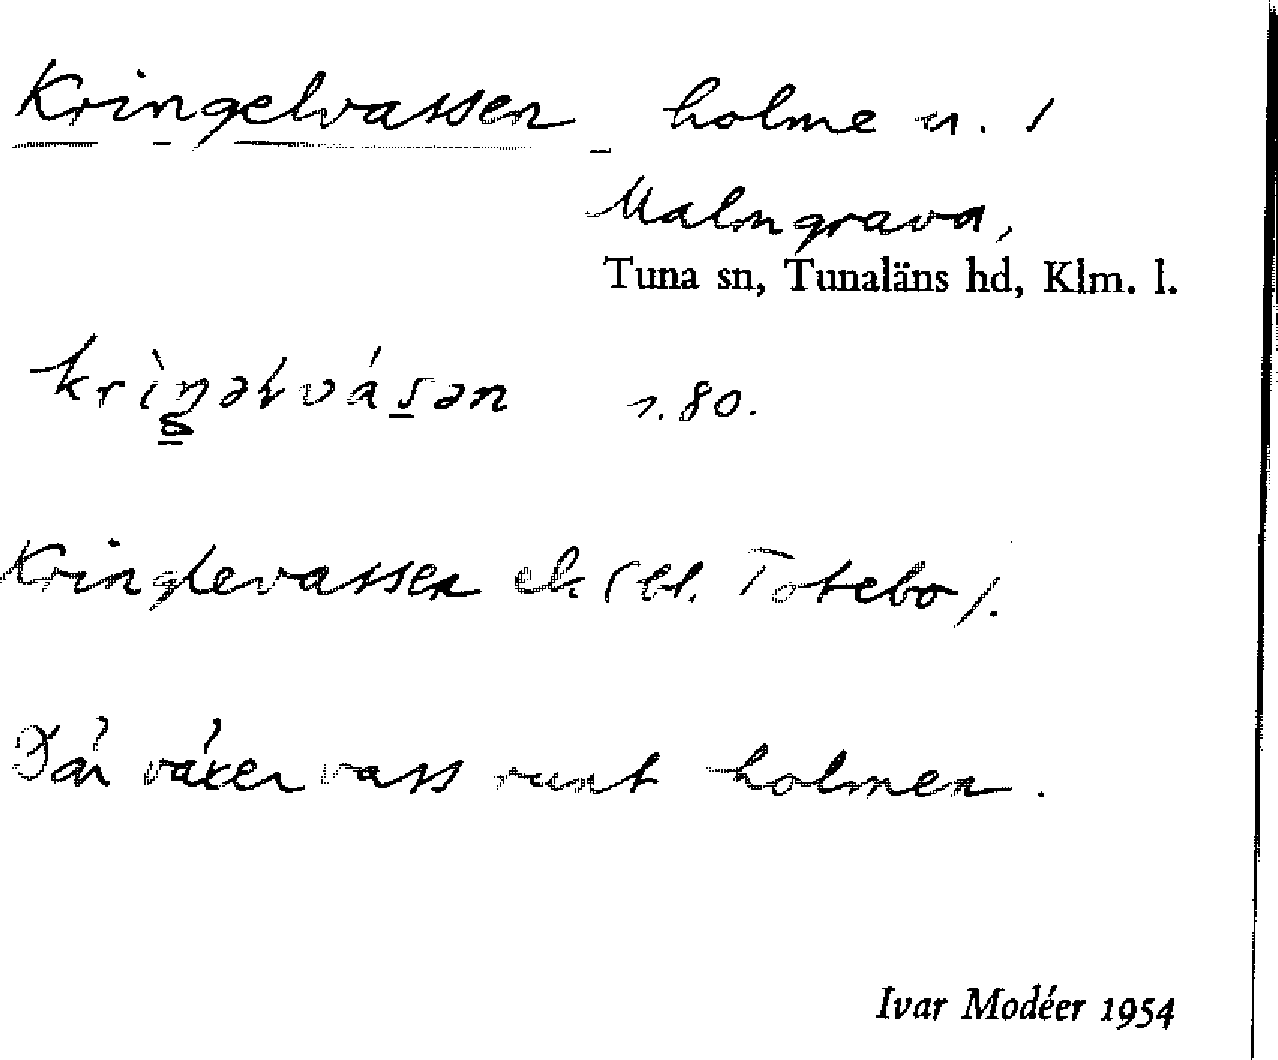 Kringelvassen holme u. /
Malmgrava,
Tuna sn, Tunaläns hd, Klm. l.
krìŋəɫvásən s. 80.
Kringlevassen ek (bl. Totebo).
Där växer vass runt holmen.
Ivar Modéer 1954